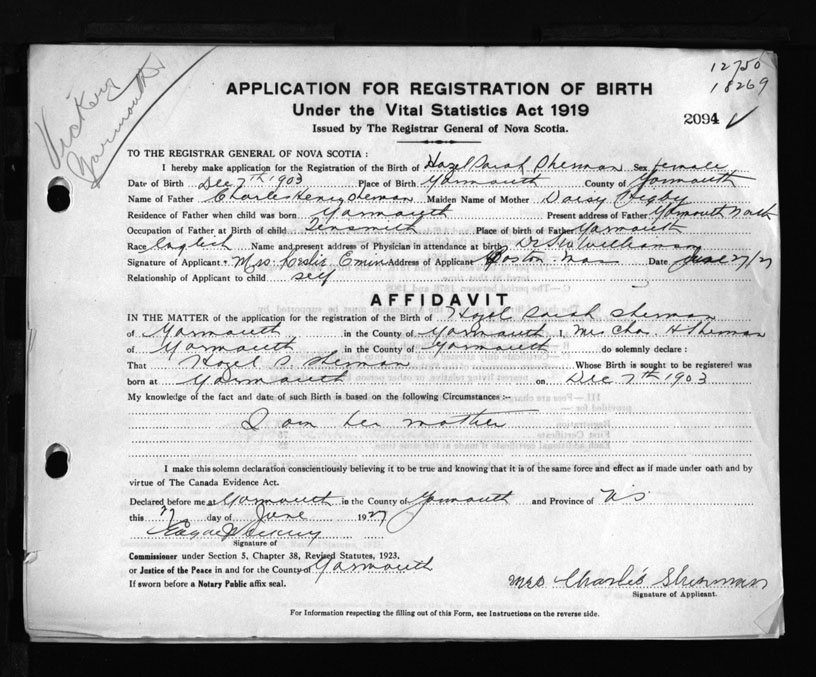 12750
18269
Vickery
Yarmouth
APPLICATION FOR REGISTRATION OF BIRTH
Under the Vital Statistics Act 1919
Issued by The Registrar General of Nova Scotia.
2094
TO THE REGISTRAR GENERAL OF NOVA SCOTIA :
I hereby make application for the Registration of the Birth of Hazel Sarah Sherman Sex female
Date of Birth Dec 7th 1903 Place of Birth Yarmouth County of Yarmouth
Name of Father Charles Henry Sherman Maiden Name of Mother Daisy Higby
Residence of Father when child was born Yarmouth Present address of Father Yarmouth North
Occupation of Father at Birth of child Tinsmith Place of birth of Father Yarmouth
Race English Name and present address of Physician in attendance at birth Dr Williamson
Signature of Applicant Mrs. Leslie Address of Applicant Boston Mass Date June 27/27
Relationship of Applicant to child self
AFFIDAVIT
IN THE MATTER of the application for the registration of the Birth of Hazel Sarah Sherman
of Yarmouth in the County of Yarmouth I, Mrs Chas H Sherman
of Yarmouth in the County of Yarmouth do solemnly declare :
That Hazel S Sherman Whose Birth is sought to be registered was
born at Yarmouth on Dec 7th 1903
My knowledge of the fact and date of such Birth is based on the following Circumstances :-
I am her mother
I make this solemn declaration conscientiously believing it to be true and knowing that it is of the same force and effect as if made under oath and by
virtue of The Canada Evidence Act.
Declared before me at Yarmouth in the County of Yarmouth and Province of NS
this day of June 1927
Signature of
Commissioner under Section 5, Chapter 38, Revised Statutes, 1923,
or Justice of the Peace in and for the County of Yarmouth
If sworn before a Notary Public affix seal.
Mrs Charles Sherman
Signature of Applicant.
For Information respecting the filling out of this Form, see Instructions on the reverse side.